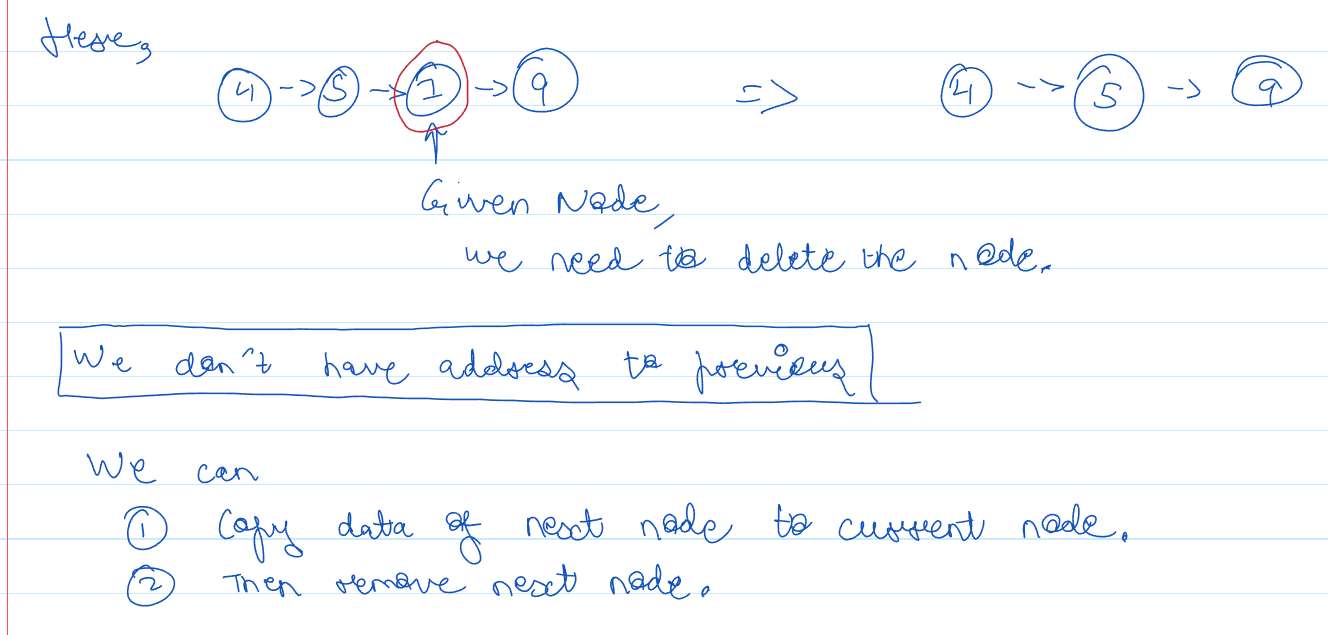 Here,
4 -> 5 -> 1 -> 9 => 4 -> 5 -> 9
Given Node,
we need to delete the node.
We don't have address to previous
We can
① Copy data of next node to current node.
② Then remove next node.